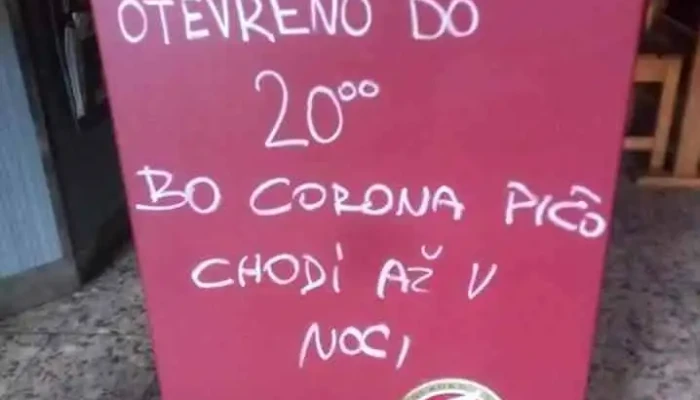 OTEVŘENO DO
20⁰⁰
BO CORONA PIČO
CHODÍ AŽ V
NOCI